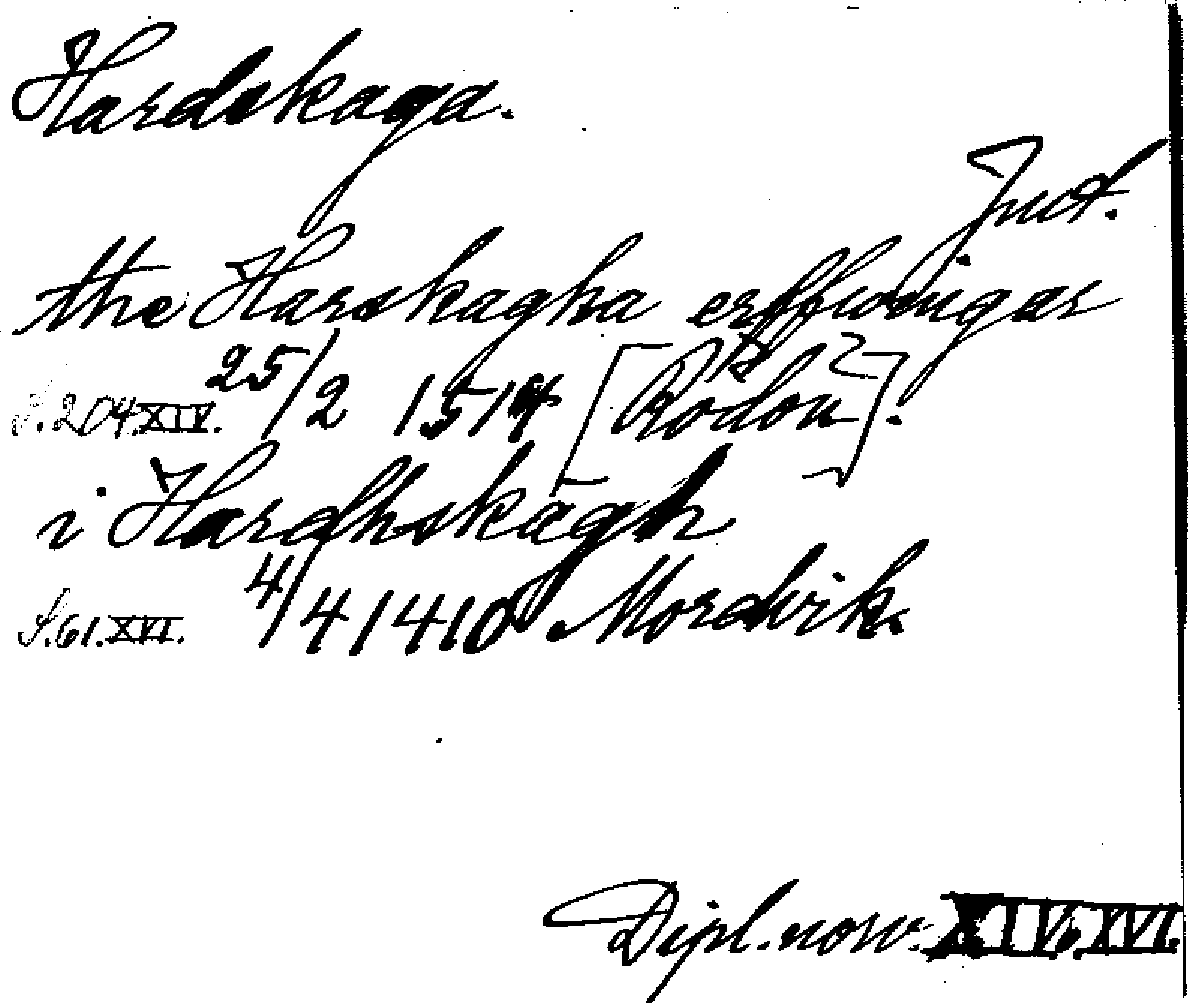 Hardskaga.
Juct.
the Harskagha erffwingar
S. 204. XIV. 25/2 1514 [Rödön].
i Hardhskagh
S. 61. XVI. 4/4 1410 Mordvik.
Dipl. norv. XIV, XVI.